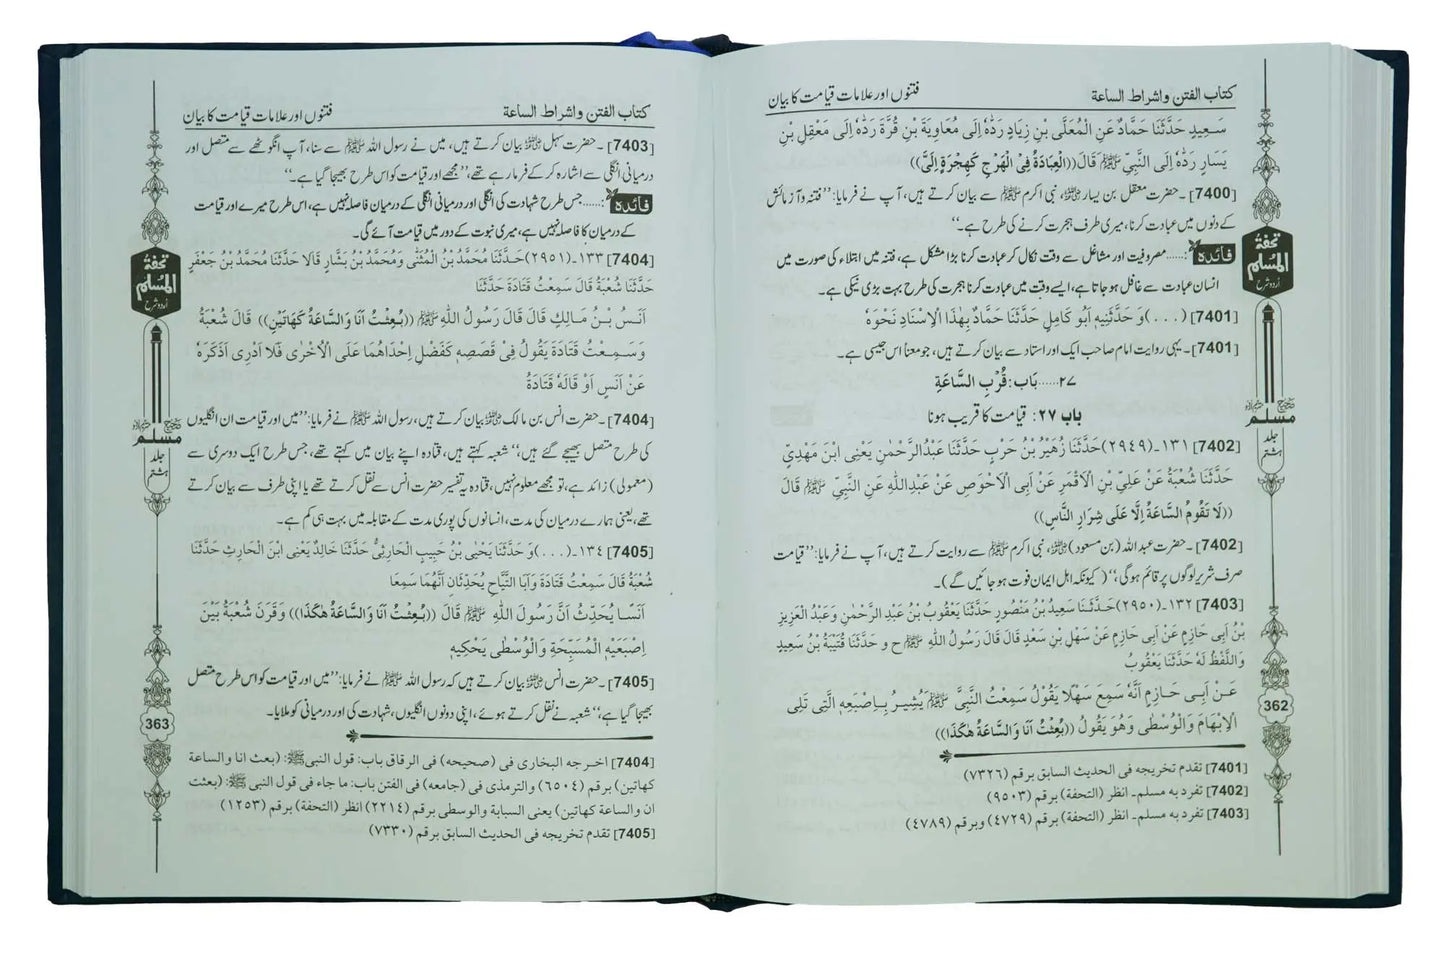 كتاب الفتن واشراط الساعة
فتنوں اور علامات قیامت کا بیان
سَعِيدٍ حَدَّثَنَا حَمَّادٌ عَنِ الْمُعَلَّى بْنِ زِيَادٍ رَدَّهٗ اِلَى مُعَاوِيَةَ بْنِ قُرَّةَ رَدَّهٗ اِلَى مَعْقِلِ بْنِ
يَسَارٍ رَدَّهٗ اِلَى النَّبِيِّ ﷺ قَالَ((الْعِبَادَةُ فِيْ الْهَرْجِ كَهِجْرَةٍ اِلَيَّ))
[7400]۔حضرت معقل بن یسار رضی اللہ عنہ، نبی اکرم ﷺ سے بیان کرتے ہیں، آپ نے فرمایا: ’’فتنہ و آزمائش
کے دنوں میں عبادت کرنا، میری طرف ہجرت کرنے کی طرح ہے۔‘‘
فائدہ:......مصروفیت اور مشاغل سے وقت نکال کر عبادت کرنا بڑا مشکل ہے، فتنہ میں ابتلاء کی صورت میں
انسان عبادت سے غافل ہو جاتا ہے، ایسے وقت میں عبادت کرنا ہجرت کی طرح بہت بڑی نیکی ہے۔
[7401] (...)وَ حَدَّثَنِيْهِ اَبُو كَامِلٍ حَدَّثَنَا حَمَّادٌ بِهٰذَا الْاِسْنَادِ نَحْوَهٗ
[7401]۔یہی روایت امام صاحب ایک اور استاد سے بیان کرتے ہیں، جو معنًا اس جیسی ہے۔
٢٧.....بَاب: قُرْبِ السَّاعَةِ
باب ٢٧: قیامت کا قریب ہونا
[7402] ١٣١۔(٢٩٤٩)حَدَّثَنَا زُهَيْرُ بْنُ حَرْبٍ حَدَّثَنَا عَبْدُالرَّحْمٰنِ يَعْنِى ابْنَ مَهْدِيٍّ
حَدَّثَنَا شُعْبَةُ عَنْ عَلِيِّ بْنِ الْاَقْمَرِ عَنْ اَبِى الْاَحْوَصِ عَنْ عَبْدِاللهِ عَنِ النَّبِيِّ ﷺ قَالَ
((لَا تَقُومُ السَّاعَةُ اِلَّا عَلَى شِرَارِ النَّاسِ))
[7402]۔حضرت عبداللہ (بن مسعود) رضی اللہ عنہ، نبی اکرم ﷺ سے روایت کرتے ہیں، آپ نے فرمایا: ’’قیامت
صرف شریر لوگوں پر قائم ہوگی،‘‘ (کیونکہ اہل ایمان فوت ہو جائیں گے)۔
[7403] ١٣٢۔(٢٩٥٠)حَدَّثَنَا سَعِيدُ بْنُ مَنْصُورٍ حَدَّثَنَا يَعْقُوبُ بْنُ عَبْدِ الرَّحْمٰنِ وَعَبْدُ الْعَزِيزِ
بْنُ اَبِى حَازِمٍ عَنْ اَبِى حَازِمٍ عَنْ سَهْلِ بْنِ سَعْدٍ قَالَ قَالَ رَسُولُ اللهِ ﷺ ح و حَدَّثَنَا قُتَيْبَةُ بْنُ سَعِيدٍ
وَاللَّفْظُ لَهٗ حَدَّثَنَا يَعْقُوبُ
عَنْ اَبِى حَازِمٍ اَنَّهٗ سَمِعَ سَهْلًا يَقُولُ سَمِعْتُ النَّبِيَّ ﷺ يُشِيرُ بِاِصْبَعِهِ الَّتِى تَلِى
الْاِبْهَامَ وَالْوُسْطٰى وَهُوَ يَقُولُ ((بُعِثْتُ اَنَا وَالسَّاعَةُ هٰكَذَا))
[7401] تقدم تخريجه فى الحديث السابق برقم (٧٣٢٦)
[7402] تفرد به مسلم۔ انظر (التحفة) برقم (٩٥٠٣)
[7403] تفرد به مسلم۔ انظر (التحفة) برقم (٤٧٢٩) وبرقم (٤٧٨٩)
تحفۃ
المسلم
اردو شرح
صحیح
مسلم
جلد
ہشتم
362
كتاب الفتن واشراط الساعة
فتنوں اور علامات قیامت کا بیان
[7403]۔حضرت سہل رضی اللہ عنہ بیان کرتے ہیں، میں نے رسول اللہ ﷺ سے سنا، آپ انگوٹھے سے متصل اور
درمیانی انگلی سے اشارہ کر کے فرما رہے تھے، ’’مجھے اور قیامت کو اس طرح بھیجا گیا ہے۔‘‘
فائدہ:......جس طرح شہادت کی انگلی اور درمیانی انگلی کے درمیان فاصلہ نہیں ہے، اس طرح میرے اور قیامت
کے درمیان کا فاصلہ نہیں ہے، میری نبوت کے دور میں قیامت آئے گی۔
[7404] ١٣٣۔(٢٩٥١)حَدَّثَنَا مُحَمَّدُ بْنُ الْمُثَنّٰى وَمُحَمَّدُ بْنُ بَشَّارٍ قَالَا حَدَّثَنَا مُحَمَّدُ بْنُ جَعْفَرٍ
حَدَّثَنَا شُعْبَةُ قَالَ سَمِعْتُ قَتَادَةَ حَدَّثَنَا
اَنَسُ بْنُ مَالِكٍ قَالَ قَالَ رَسُولُ اللهِ ﷺ ((بُعِثْتُ اَنَا وَالسَّاعَةُ كَهَاتَيْنِ)) قَالَ شُعْبَةُ
وَسَمِعْتُ قَتَادَةَ يَقُولُ فِيْ قَصَصِهٖ كَفَضْلِ اِحْدَاهُمَا عَلَى الْاُخْرٰى فَلَا اَدْرِى اَذَكَرَهٗ
عَنْ اَنَسٍ اَوْ قَالَهٗ قَتَادَةُ
[7404]۔حضرت انس بن مالک رضی اللہ عنہ بیان کرتے ہیں، رسول اللہ ﷺ نے فرمایا: ’’میں اور قیامت ان انگلیوں
کی طرح متصل بھیجے گئے ہیں،‘‘ شعبہ کہتے ہیں، قتادہ اپنے بیان میں کہتے تھے، جس طرح ایک دوسری سے
(معمولی) زائد ہے، تو مجھے معلوم نہیں، قتادہ یہ تفسیر حضرت انس سے نقل کرتے تھے یا اپنی طرف سے بیان کرتے
تھے، یعنی ہمارے درمیان کی مدت، انسانوں کی پوری مدت کے مقابلہ میں بہت ہی کم ہے۔
[7405] ١٣٤۔(...)وَ حَدَّثَنَا يَحْيٰى بْنُ حَبِيبٍ الْحَارِثِيُّ حَدَّثَنَا خَالِدٌ يَعْنِى ابْنَ الْحَارِثِ حَدَّثَنَا
شُعْبَةُ قَالَ سَمِعْتُ قَتَادَةَ وَاَبَا التَّيَّاحِ يُحَدِّثَانِ اَنَّهُمَا سَمِعَا
اَنَسًا يُحَدِّثُ اَنَّ رَسُولَ اللهِ ﷺ قَالَ ((بُعِثْتُ اَنَا وَالسَّاعَةُ هٰكَذَا)) وَقَرَنَ شُعْبَةُ بَيْنَ
اِصْبَعَيْهِ الْمُسَبِّحَةِ وَالْوُسْطٰى يَحْكِيهِ
[7405]۔حضرت انس رضی اللہ عنہ بیان کرتے ہیں کہ رسول اللہ ﷺ نے فرمایا: ’’میں اور قیامت کو اس طرح متصل
بھیجا گیا ہے،‘‘ شعبہ نے نقل کرتے ہوئے، اپنی دونوں انگلیوں، شہادت کی اور درمیانی کو ملایا۔
[7404] اخرجه البخارى فى (صحيحه) فى الرقاق باب: قول النبى ﷺ: (بعث انا والساعة
كهاتين) برقم (٦٥٠٤) والترمذى فى (جامعه) فى الفتن باب: ما جاء فى قول النبى ﷺ: (بعثت
ان والساعة كهاتين) يعنى السبابة والوسطى برقم (٢٢١٤) انظر (التحفة) برقم (١٢٥٣)
[7405] تقدم تخريجه فى الحديث السابق برقم (٧٣٣٠)
تحفۃ
المسلم
اردو شرح
صحیح
مسلم
جلد
ہشتم
363